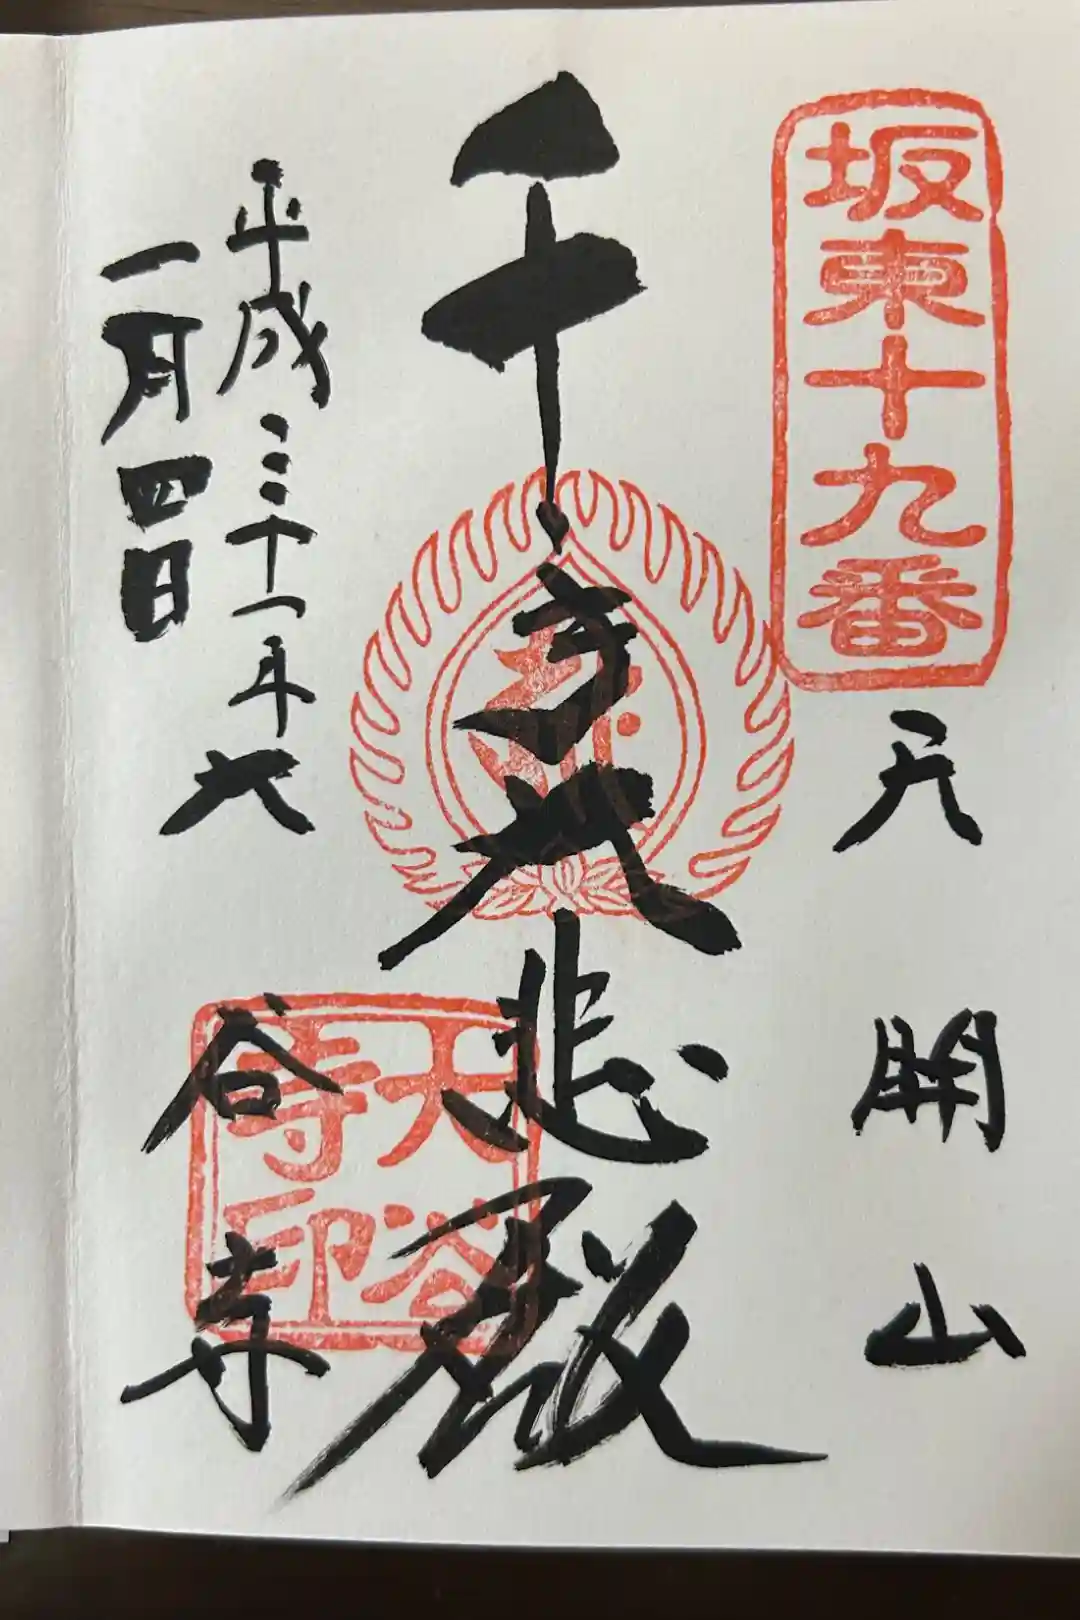 坂東十九番
天開山
千手大悲殿
平成三十一年
一月四日
大谷寺
大谷
寺印